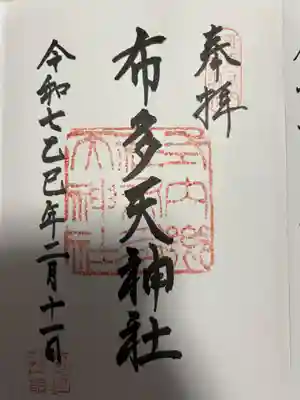 奉拝
布多天神社
令和七乙巳年二月十一日